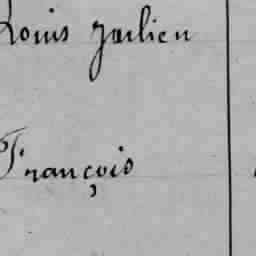 Louis Julien
François